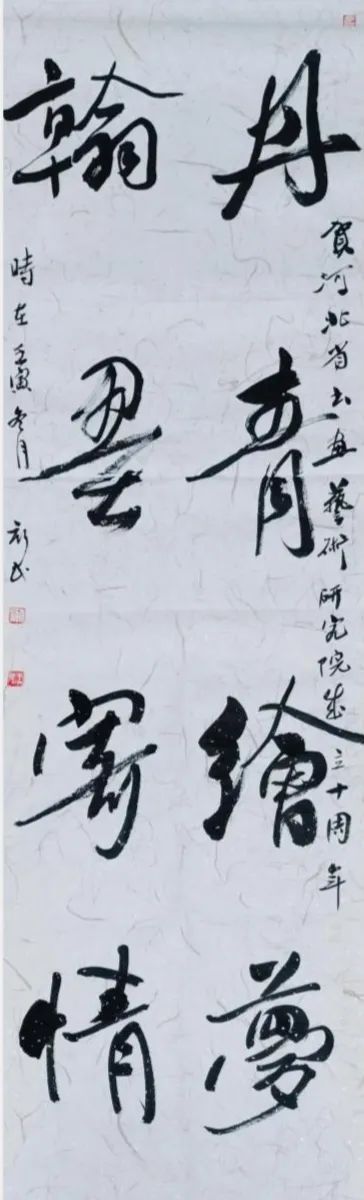 賀河北省书画藝術研究院成立十周年
丹青繪夢
翰墨寄情
時在壬寅冬月